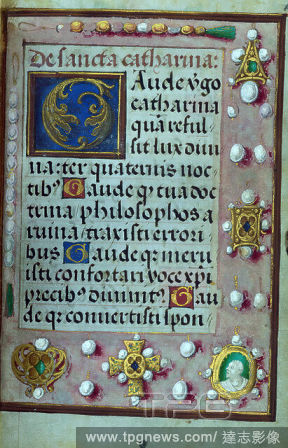 De sancta catharina:
Gaude v̄go
catharina
quā reful-
sit lux diui
na: ter quaternis noc
tibꝰ Gaude qꝛ tua doc
trina philosophos a
ruina traxisti errori
bus Gaude qꝛ meru
isti confortari voce xp̄i
precibꝰ diuinit? Gau
de qꝛ conuertisti spon
TPG
www.tpgnews.com/ 達志影像